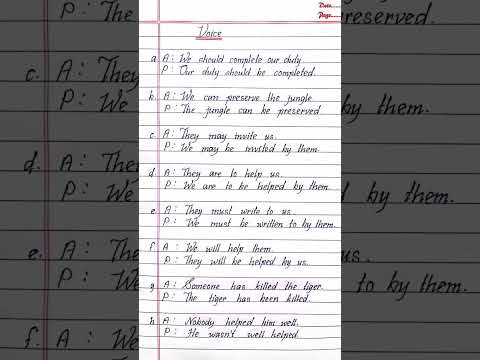 Date....
Page....
Voice
a. A: We should complete our duty.
P: Our duty should be completed.
b. A: We can preserve the jungle
P: The jungle can be preserved.
c. A: They may invite us.
P: We may be invited by them.
d. A: They are to help us.
P: We are to be helped by them.
e. A: They must write to us.
P: We must be written to by them.
f. A: We will help them.
P: They will be helped by us.
g. A: Someone has killed the tiger.
P: The tiger has been killed.
h. A: Nobody helped him well.
P: He wasn't well helped.
c. A: They
P: We
d. A: They
P: We
e. A: The
P: We
f. A: We
preserved.
them.
by them.
to by them.